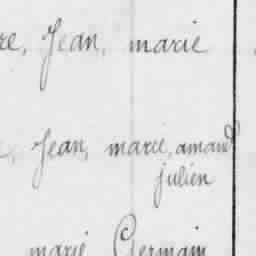 re, Jean, marie
, Jean, marie, amand
julien
marie Germain